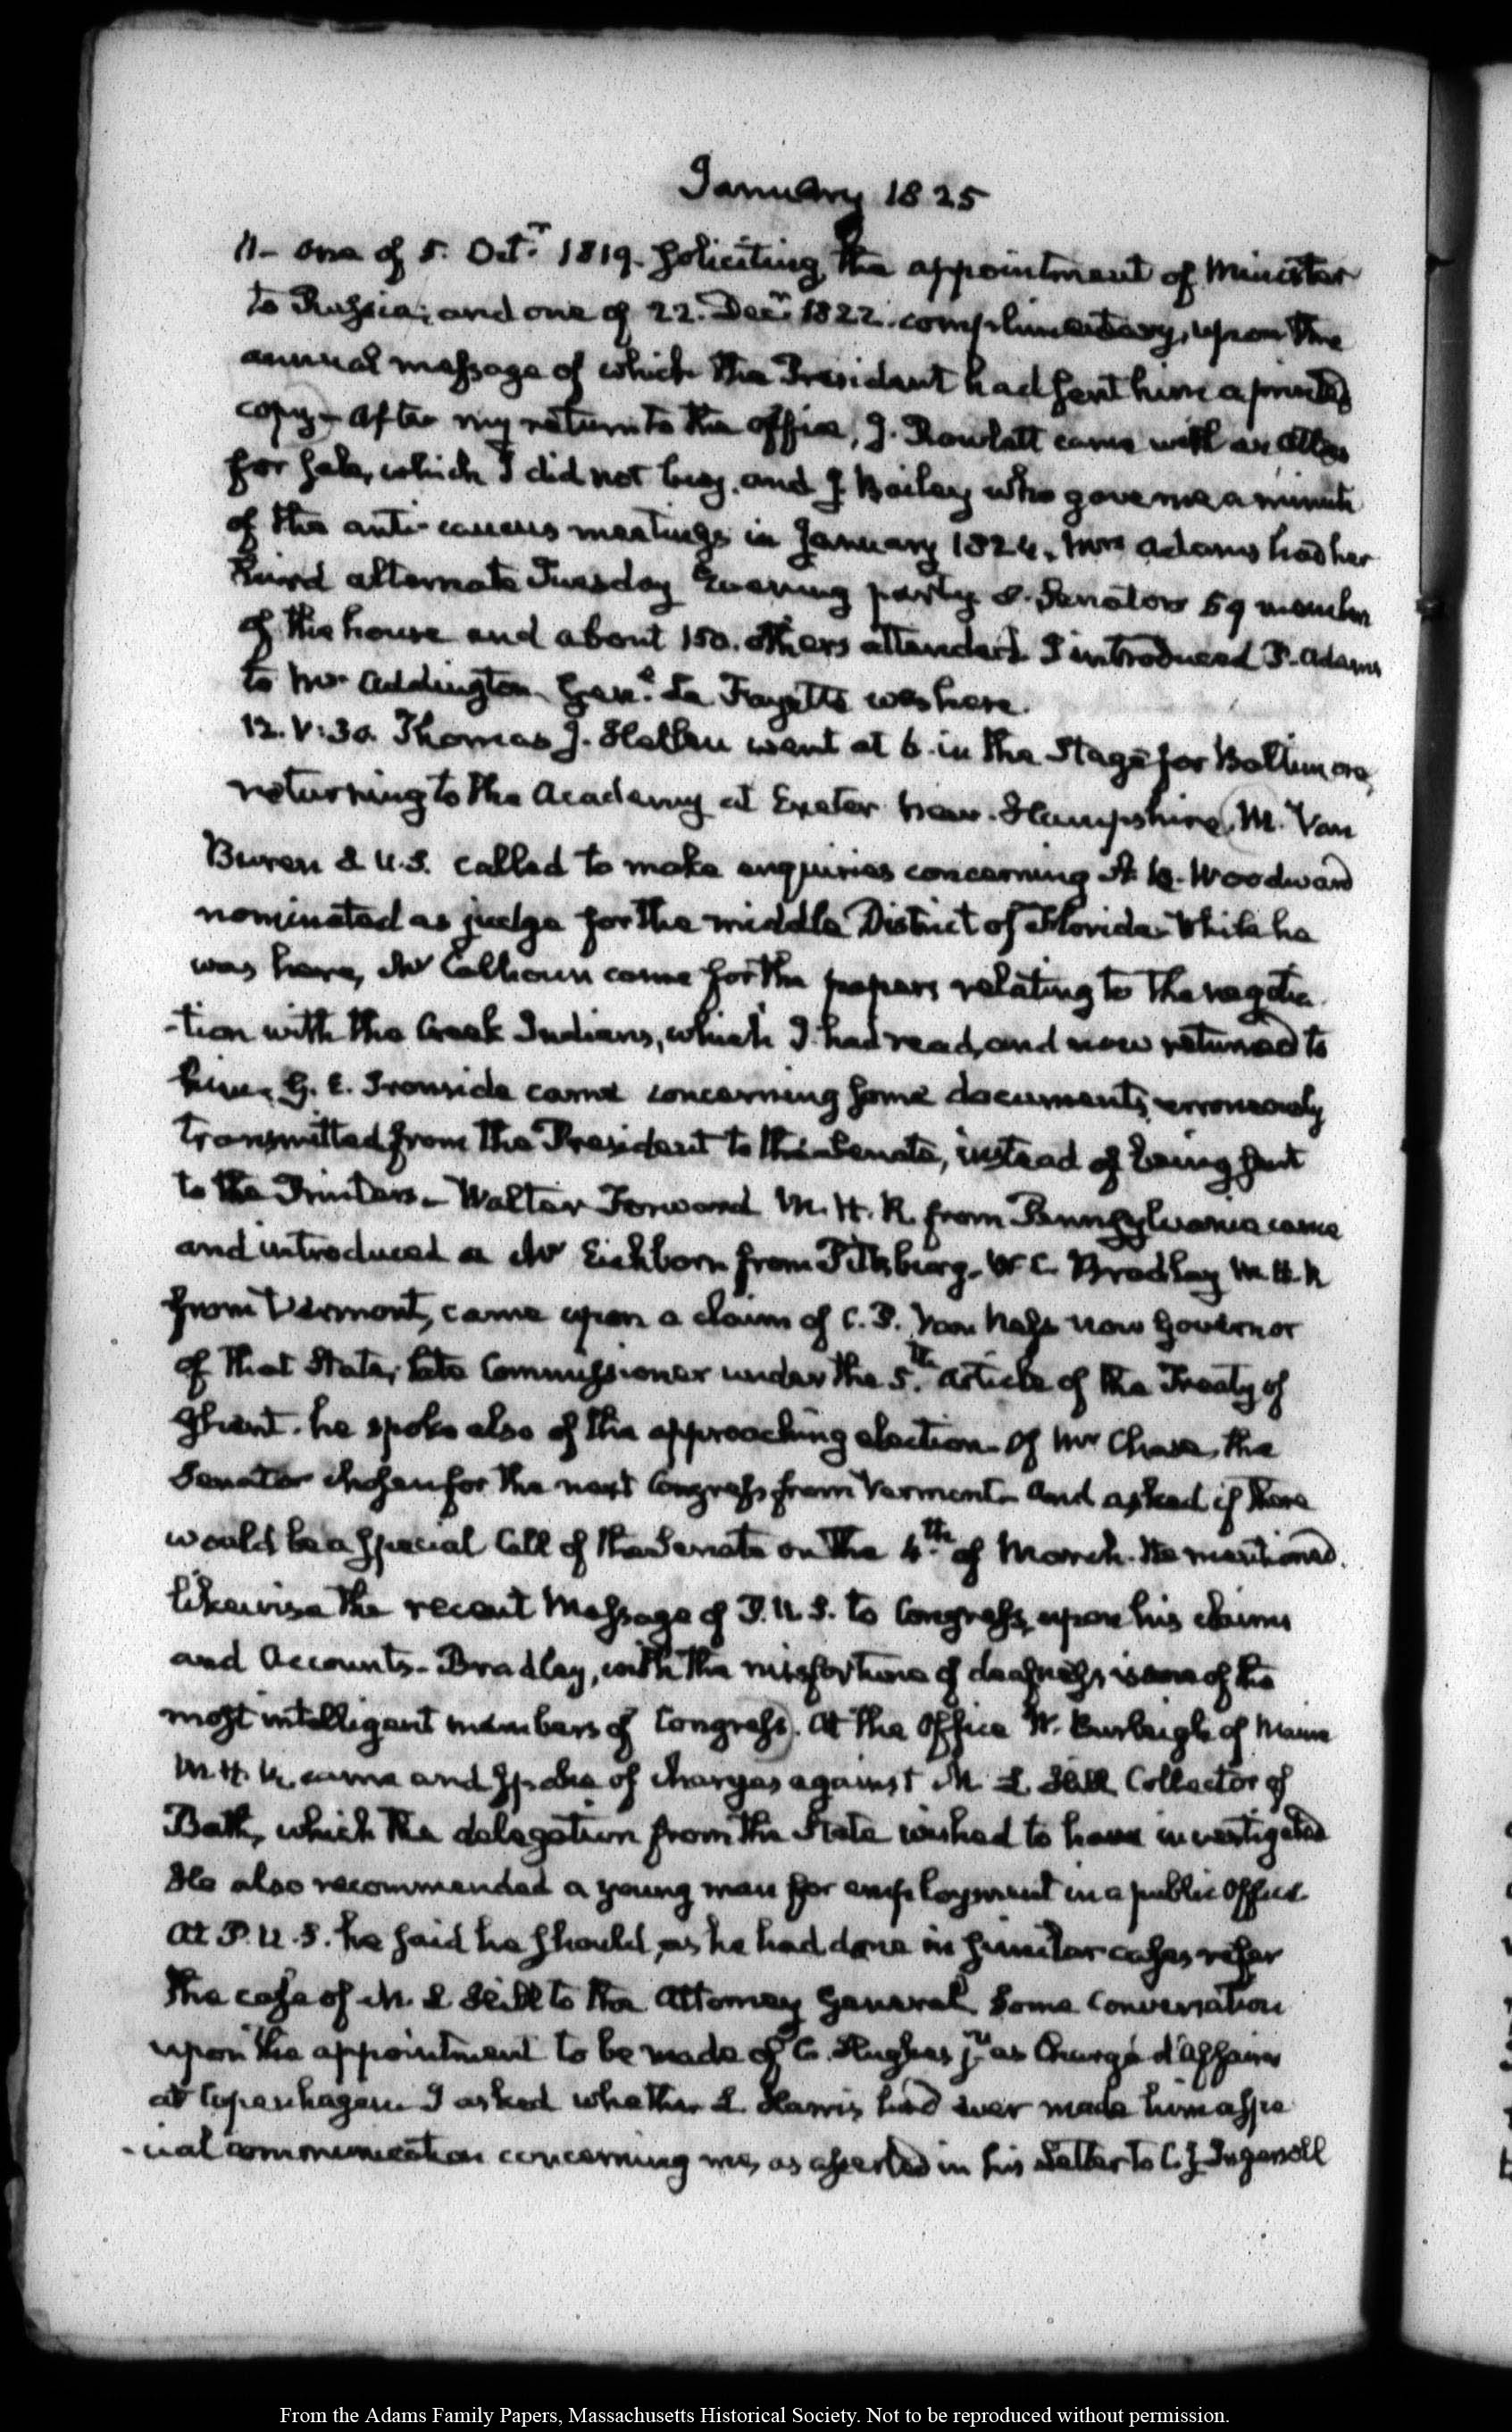 January 1825
11 – one of 5. Octr. 1819. soliciting the appointment of Minister
to Russia; and one of 22. Decr. 1822. complimentary, upon the
annual message of which the President had sent him a printed
copy – After my return to the office, J. Rowlett came with an
for sale, which I did not buy. and J. Bailey who gave me a minute
of the anti-caucus meetings in January 1824. Mrs Adams had her
third alternate Tuesday Evening party. 8. Senators 59 members
of the house and about 150. others attended. I introduced P. Adams
to Mr Addington. Genl. La Fayette was here.
12. V:30. Thomas J. Hellen went at 6. in the Stage for Baltimore,
returning to the Academy at Exeter New-Hampshire. M. Van
Buren S U.S. called to make enquiries concerning A. B. Woodward
nominated as judge for the middle District of Florida. While he
was here, Mr Calhoun came for the papers relating to the negotia
-tion with the Creek Indians, which I had read, and now returned to
him. G. E. Ironside came concerning some documents, erroneously
transmitted from the President to the Senate, instead of being sent
to the Printers – Walter Forward M. H. R. from Pennsylvania came
and introduced a Mr Eichborn from Pittsburg. W. C. Bradley M. H. R
from Vermont, came upon a claim of C. P. Van Ness now Governor
of that State, late Commissioner under the 5th. Article of the Treaty of
Ghent. he spoke also of the approaching election – Of Mr Chase, the
Senator chosen for the next Congress from Vermont – And asked if there
would be a special Call of the Senate on the 4th. of March. He mentioned
likewise the recent Message of P. U. S. to Congress, upon his claims
and Accounts – Bradley, with the misfortune of deafness is one of the
most intelligent members of Congress. At the Office W. Burleigh of Maine
M. H. R. came and spoke of charges against M. L. Hill Collector of
Bath, which the delegation from the State wished to have investigated
He also recommended a young man for employment in a public Office.
At P. U. S. he said he should, as he had done in similar cases refer
the case of M. L Hill to the Attorney General. Some Conversation
upon the appointment to be made of C. Hughes jr. as Chargé d'Affaires
at Copenhagen. I asked whether L. Harris had ever made him a spe
-cial communication concerning me, as asserted in his Letter to C. J. Ingersoll
From the Adams Family Papers, Massachusetts Historical Society. Not to be reproduced without permission.